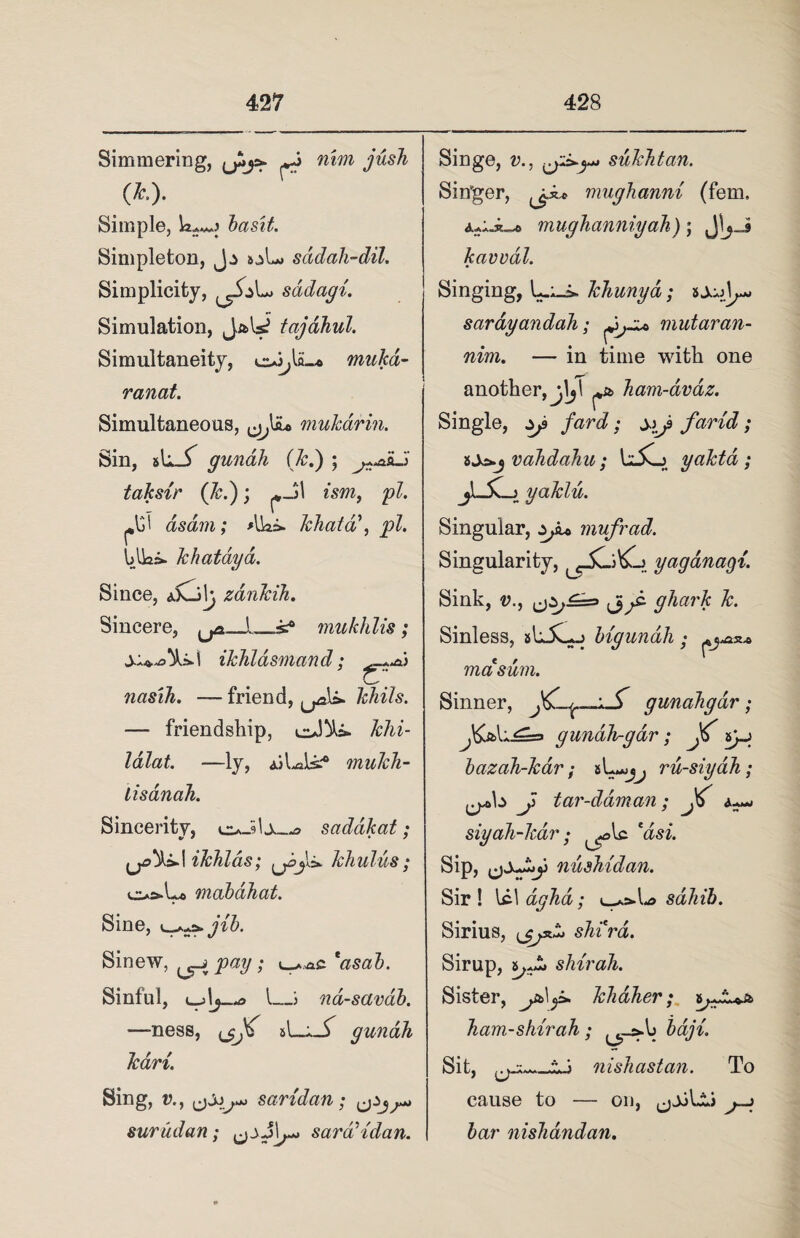 427
428
Simmering, نیم جوش ním júsh
(k.).
Simple, بسیط basít.
Simpleton, ساده دل sádah-dil.
Simplicity, سادگی sádagí.
Simulation, تجاهل tajáhul.
Simultaneity, مقارنت muká-
ranat.
Simultaneous, مقارن mukárin.
Sin, گناه gunáh (k.) ; تقصیر
taksír (k.); اثم ism, pl.
آثام ásám; خطاء khatá', pl.
خطایا khatáyá.
Since, زانکه zánkih.
Sincere, مخلص mukhlis ;
اخلاصمند ikhlásmand ; نصیح
nasíh. — friend, خلص khils.
— friendship, خلالت khi-
lálat. —ly, مخلصانه mukh-
lisánah.
Sincerity, صداقت sadákat ;
اخلاص ikhlás; خلوص khulús ;
مباحت mabáhat.
Sine, جیب jíb.
Sinew, پی pay ; عصب 'asab.
Sinful, نا صواب ná-saváb.
—ness, گناه کاری gunáh
kárí.
Sing, v., سریدن sarídan ; سرودن
surúdan ; سرائیدن sará'ídan.
Singe, v., سوختن súkhtan.
Singer, مغنی mughanní (fem.
مغنیه mughanniyah) ; قوال
kavvál.
Singing, خنیا khunyá ; سراینده
saráyandah ; مترنم mutaran-
nim. — in time with one
another, هم آواز ham-áváz.
Single, فرد fard ; فرید faríd ;
وحده vahdahu ; یکتا yaktá ;
یکلو yaklú.
Singular, مفرد mufrad.
Singularity, یگانگی yagánagí.
Sink, v., غرق کردن ghark k.
Sinless, بیگناه bígunáh ; معصوم
ma'súm.
Sinner, گنهگار gunahgár ;
گناهگار gunáh-gár ; بزه کار
bazah-kár ; روسیاه rú-siyáh ;
تر دامن tar-dáman ; سیه کار
siyah-kár ; عاصی 'ásí.
Sip, نوشیدن núshídan.
Sir ! آغا ághá ; صاحب sáhib.
Sirius, شعری shi'rá.
Sirup, شیره shírah.
Sister, خواهر kháher ; همشیره
ham-shírah ; باجی bájí.
Sit, نشستن nishastan. To
cause to — on, بر نشاندن
bar nishándan.